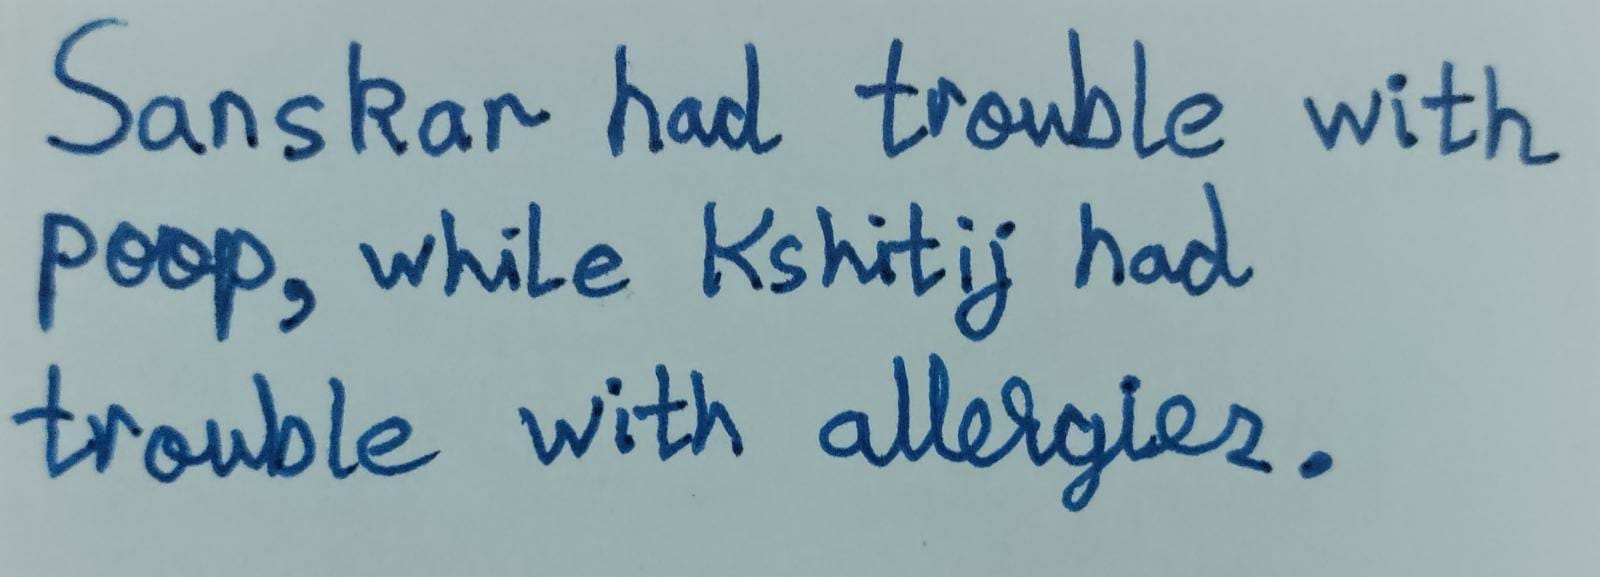 Sanskar had trouble with
poop, while Kshitij had
trouble with allergies.